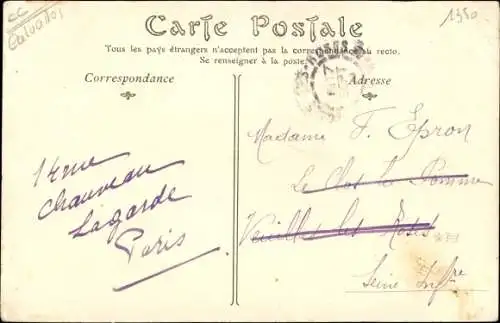 CC
Calvados
1350
Carte Postale
Tous les pays étrangers n'acceptent pas la correspondance au recto.
Se renseigner à la poste.
Correspondance
Adresse
Madame F. Epron
Le Clos la Pomme
Veuilles les Roses
Seine Infre
1 rue
Chauveau
Lagarde
Paris